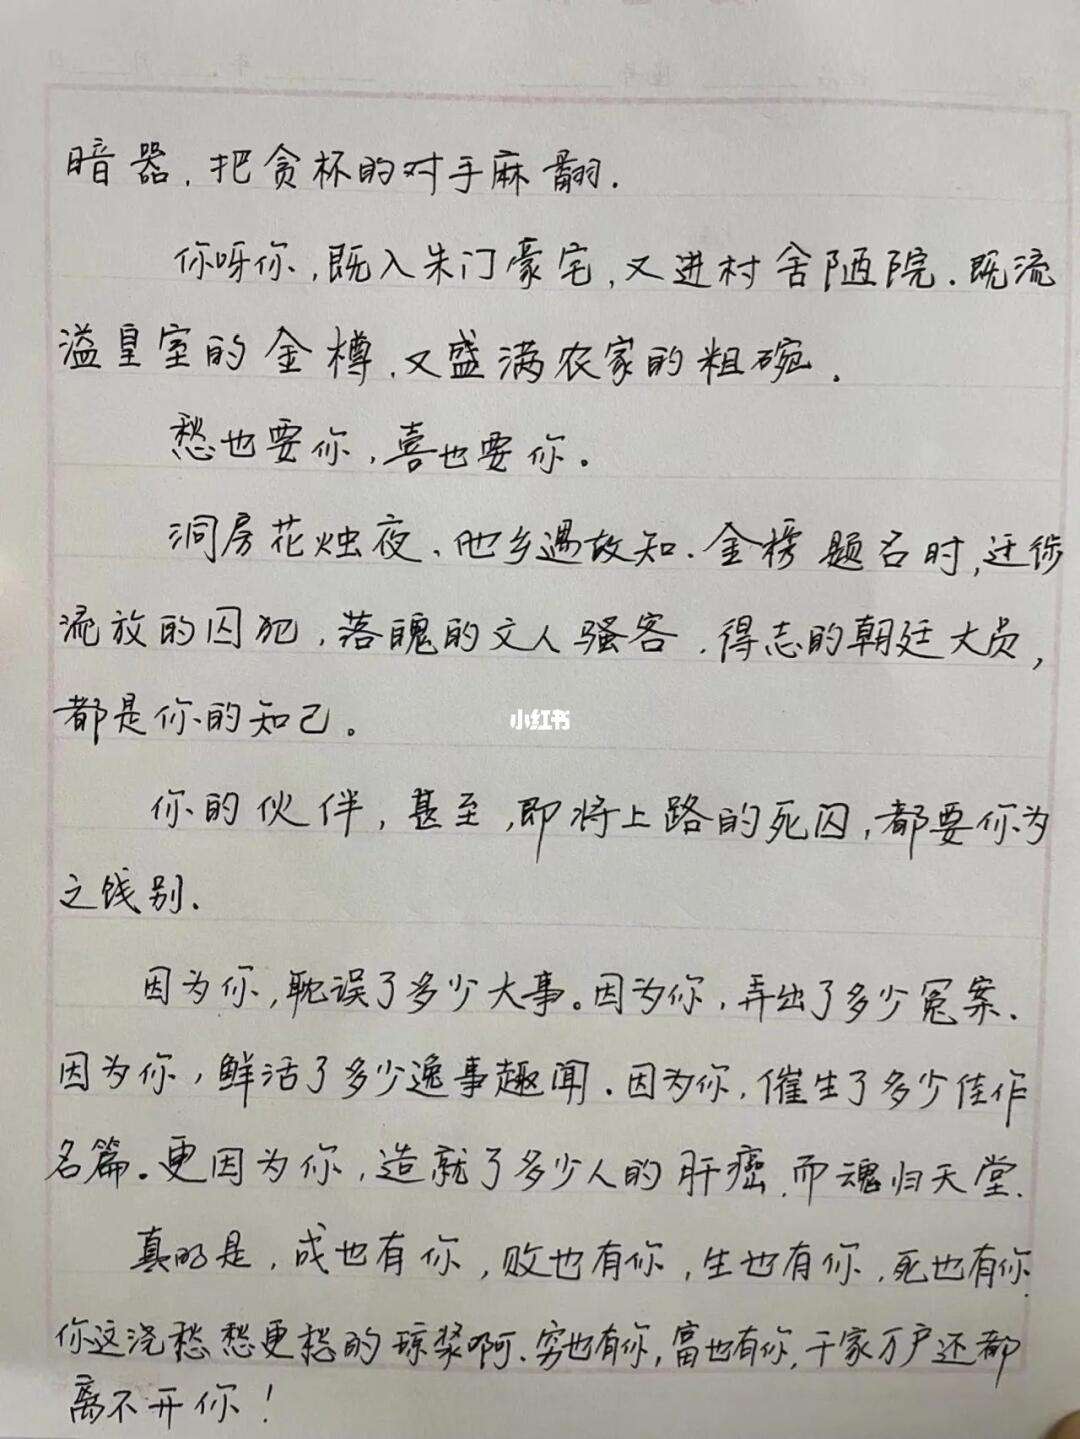 暗器,把贪杯的对手麻翻.
你呀你,既入朱门豪宅,又进村舍陋院.既流
溢皇室的金樽,又盛满农家的粗碗.
愁也要你,喜也要你。
洞房花烛夜、他乡遇故知.金榜题名时,迁徙
流放的囚犯,落魄的文人骚客.得志的朝廷大员,
都是你的知己。
小红书
你的伙伴,甚至,即将上路的死囚,都要你为
之饯别.
因为你,耽误了多少大事。因为你,弄出了多少冤案.
因为你,鲜活了多少逸事趣闻.因为你,催生了多少佳作
名篇。更因为你,造就了多少人的肝癌,而魂归天堂.
真的是,成也有你,败也有你,生也有你,死也有你.
你这浇愁愁更愁的琼浆啊.穷也有你,富也有你,千家万户还都
离不开你!